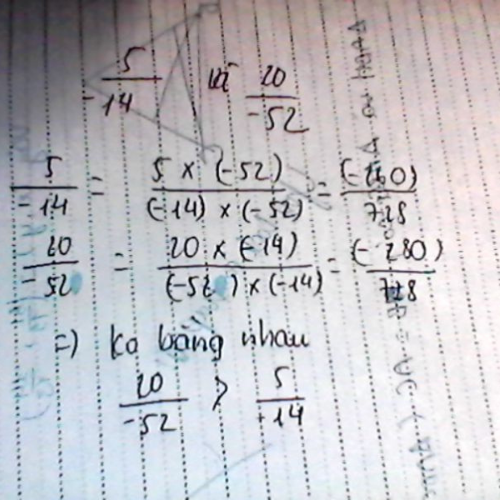 5/-14 và 20/-52
5/-14 = 5 x (-52)/(-14) x (-52) = (-260)/728
20/-52 = 20 x (-14)/(-52) x (-14) = (-280)/728
=) ko bằng nhau
20/-52 > 5/-14